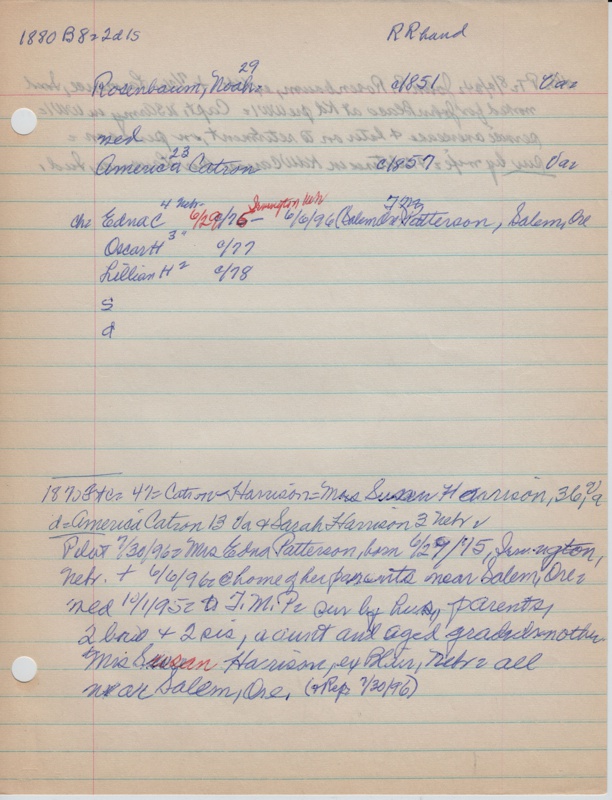 1880 B8=2d15 RRhand
Rosenbaum, Noah= 29 c/1851 Va=
med
America Catron 23 c/1857 Va=
ch: Edna C 4 Nebr- 6/29/75- Irvington Nebr 6/6/96 (Salem Ore Patterson, Salem, Ore
Oscar H 3 " c/77
Lillian H 2 c/78
s
d
47= Catron-Harrison= Mrs Susan Harrison, 36, Va
d=America Catron 13 Va & Sarah Harrison 3 Nebr
Pilot 7/30/96= Mrs Edna Patterson, born 6/29/75, Irvington,
Nebr. + 6/6/96= @ home of her parents near Salem, Ore=
med 10/1/95= to T.M.P= sur by hus, parents,
2 bros & 2 sis, a aunt and aged grandmother
Mrs Susan Harrison, ex Blair, Nebr= all
near Salem, Ore, (+Rep 7/30/96)